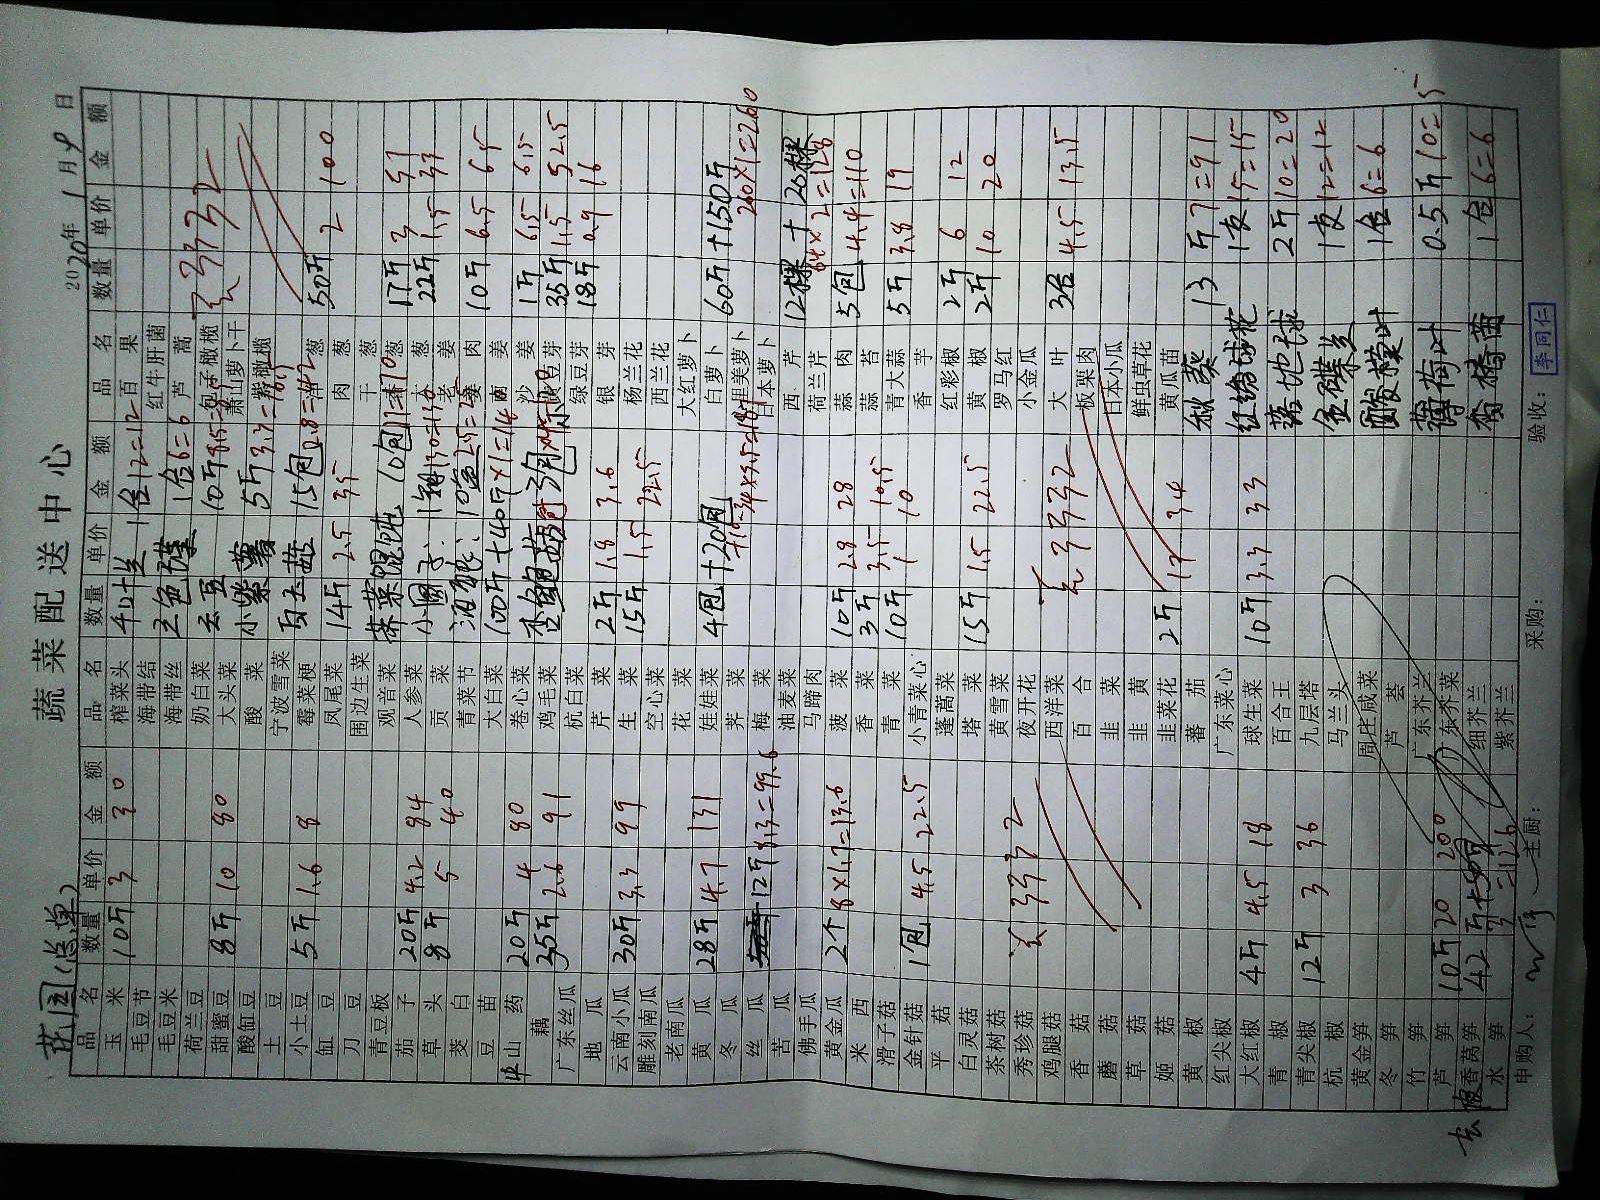 花园(总单)
蔬菜配送中心
2020年1月9日
品名 数量 单价 金额 品名 数量 单价 金额 品名 数量 单价 金额
玉米 10斤 3 30 榨菜头 千叶兰 1包12=12 百果
毛豆节 海带结 红牛肝菌
毛豆米 海带丝 三色堇 1包6=6 芦蒿
荷兰豆 奶白菜 云豆 10斤 包子橄榄
甜蜜豆 8斤 10 80 大头菜 萧山萝卜干
酸缸豆 酸菜 小紫薯 5斤 橄榄
土豆 宁波雪菜
小土豆 5斤 1.6 8 霉菜梗 15包 葱
缸豆 凤尾菜 14斤 2.5 35 肉葱 50斤 2 100
刀豆 围边生菜 干葱
青豆板 观音菜 荠菜馄饨 10包 葱 17斤 3 51
茄子 20斤 4.2 84 人参菜 小圆子 22斤 1.5 33
草头 8斤 5 40 贡菜 老姜
菱白 青菜节 10斤 6.5 65
豆苗 大白菜 100斤+40斤×1=140
山药 20斤 4 80 卷心菜 沙姜 1斤 6.5 6.5
藕 35斤 2.6 91 鸡毛菜 黄豆芽 35斤 1.5 52.5
广东丝瓜 杭白菜 绿豆芽 18斤 0.9 16
地瓜 芹菜 2斤 1.8 3.6 银芽
云南小瓜 30斤 3.3 99 生菜 15斤 1.5 22.5 杨兰花
雕刻南瓜 空心菜 西兰花
老南瓜 花菜 大红萝卜
黄瓜 28斤 4.7 131 娃娃菜 4包+20包 白萝卜 60斤+150斤
冬瓜 荠菜 里美萝卜 260×1=260
丝瓜 12斤 8.3=99.6 梅菜 日本萝卜
苦瓜 油麦菜 西芹 12棵+20棵
佛手瓜 马蹄肉 荷兰芹 64×2=128
黄金瓜 2个 8×1.7=13.6 菠菜 10斤 2.8 28 蒜肉 5包 4.4=110
米西 香菜 3斤 3.5 10.5 蒜苔
滑子菇 青菜 10斤 1 10 青大蒜 5斤 3.8 19
金针菇 1包 4.5 22.5 小青菜心 香芋
平菇 蓬蒿菜 红彩椒 2斤 6 12
白灵菇 塔菜 15斤 1.5 22.5 黄椒 2斤 10 20
茶树菇 黄雪菜 罗马红
秀珍菇 夜开花 小金瓜
鸡腿菇 西洋菜 大叶 3包 4.5 13.5
香菇 百合 板栗肉
蘑菇 韭菜 日本小瓜
草菇 韭黄 鲜虫草花
姬菇 韭菜花 2斤 17 34 黄瓜苗
黄椒 蕃茄 秋葵 13斤 7=91
红尖椒 广东菜心
大红椒 4斤 4.5 18 球生菜 10斤 3.3 33 红绣球花 1支 15=15
青椒 百合王 落地球 2斤 10=20
青尖椒 12斤 3 36 九层塔
杭椒 马兰头 金碟兰 1支 12=12
黄金笋 周庄咸菜
冬笋 芦荟 酸模叶 1包 6=6
竹笋 广东芥兰
芦笋 10斤 20 200 广东芥菜 薄荷叶 0.5斤 10=5
香莴笋 42斤 3 细芥兰
水笋 紫芥兰 香椿苗 1包 6=6
申购人: 主厨: 采购: 验收: 李同仁